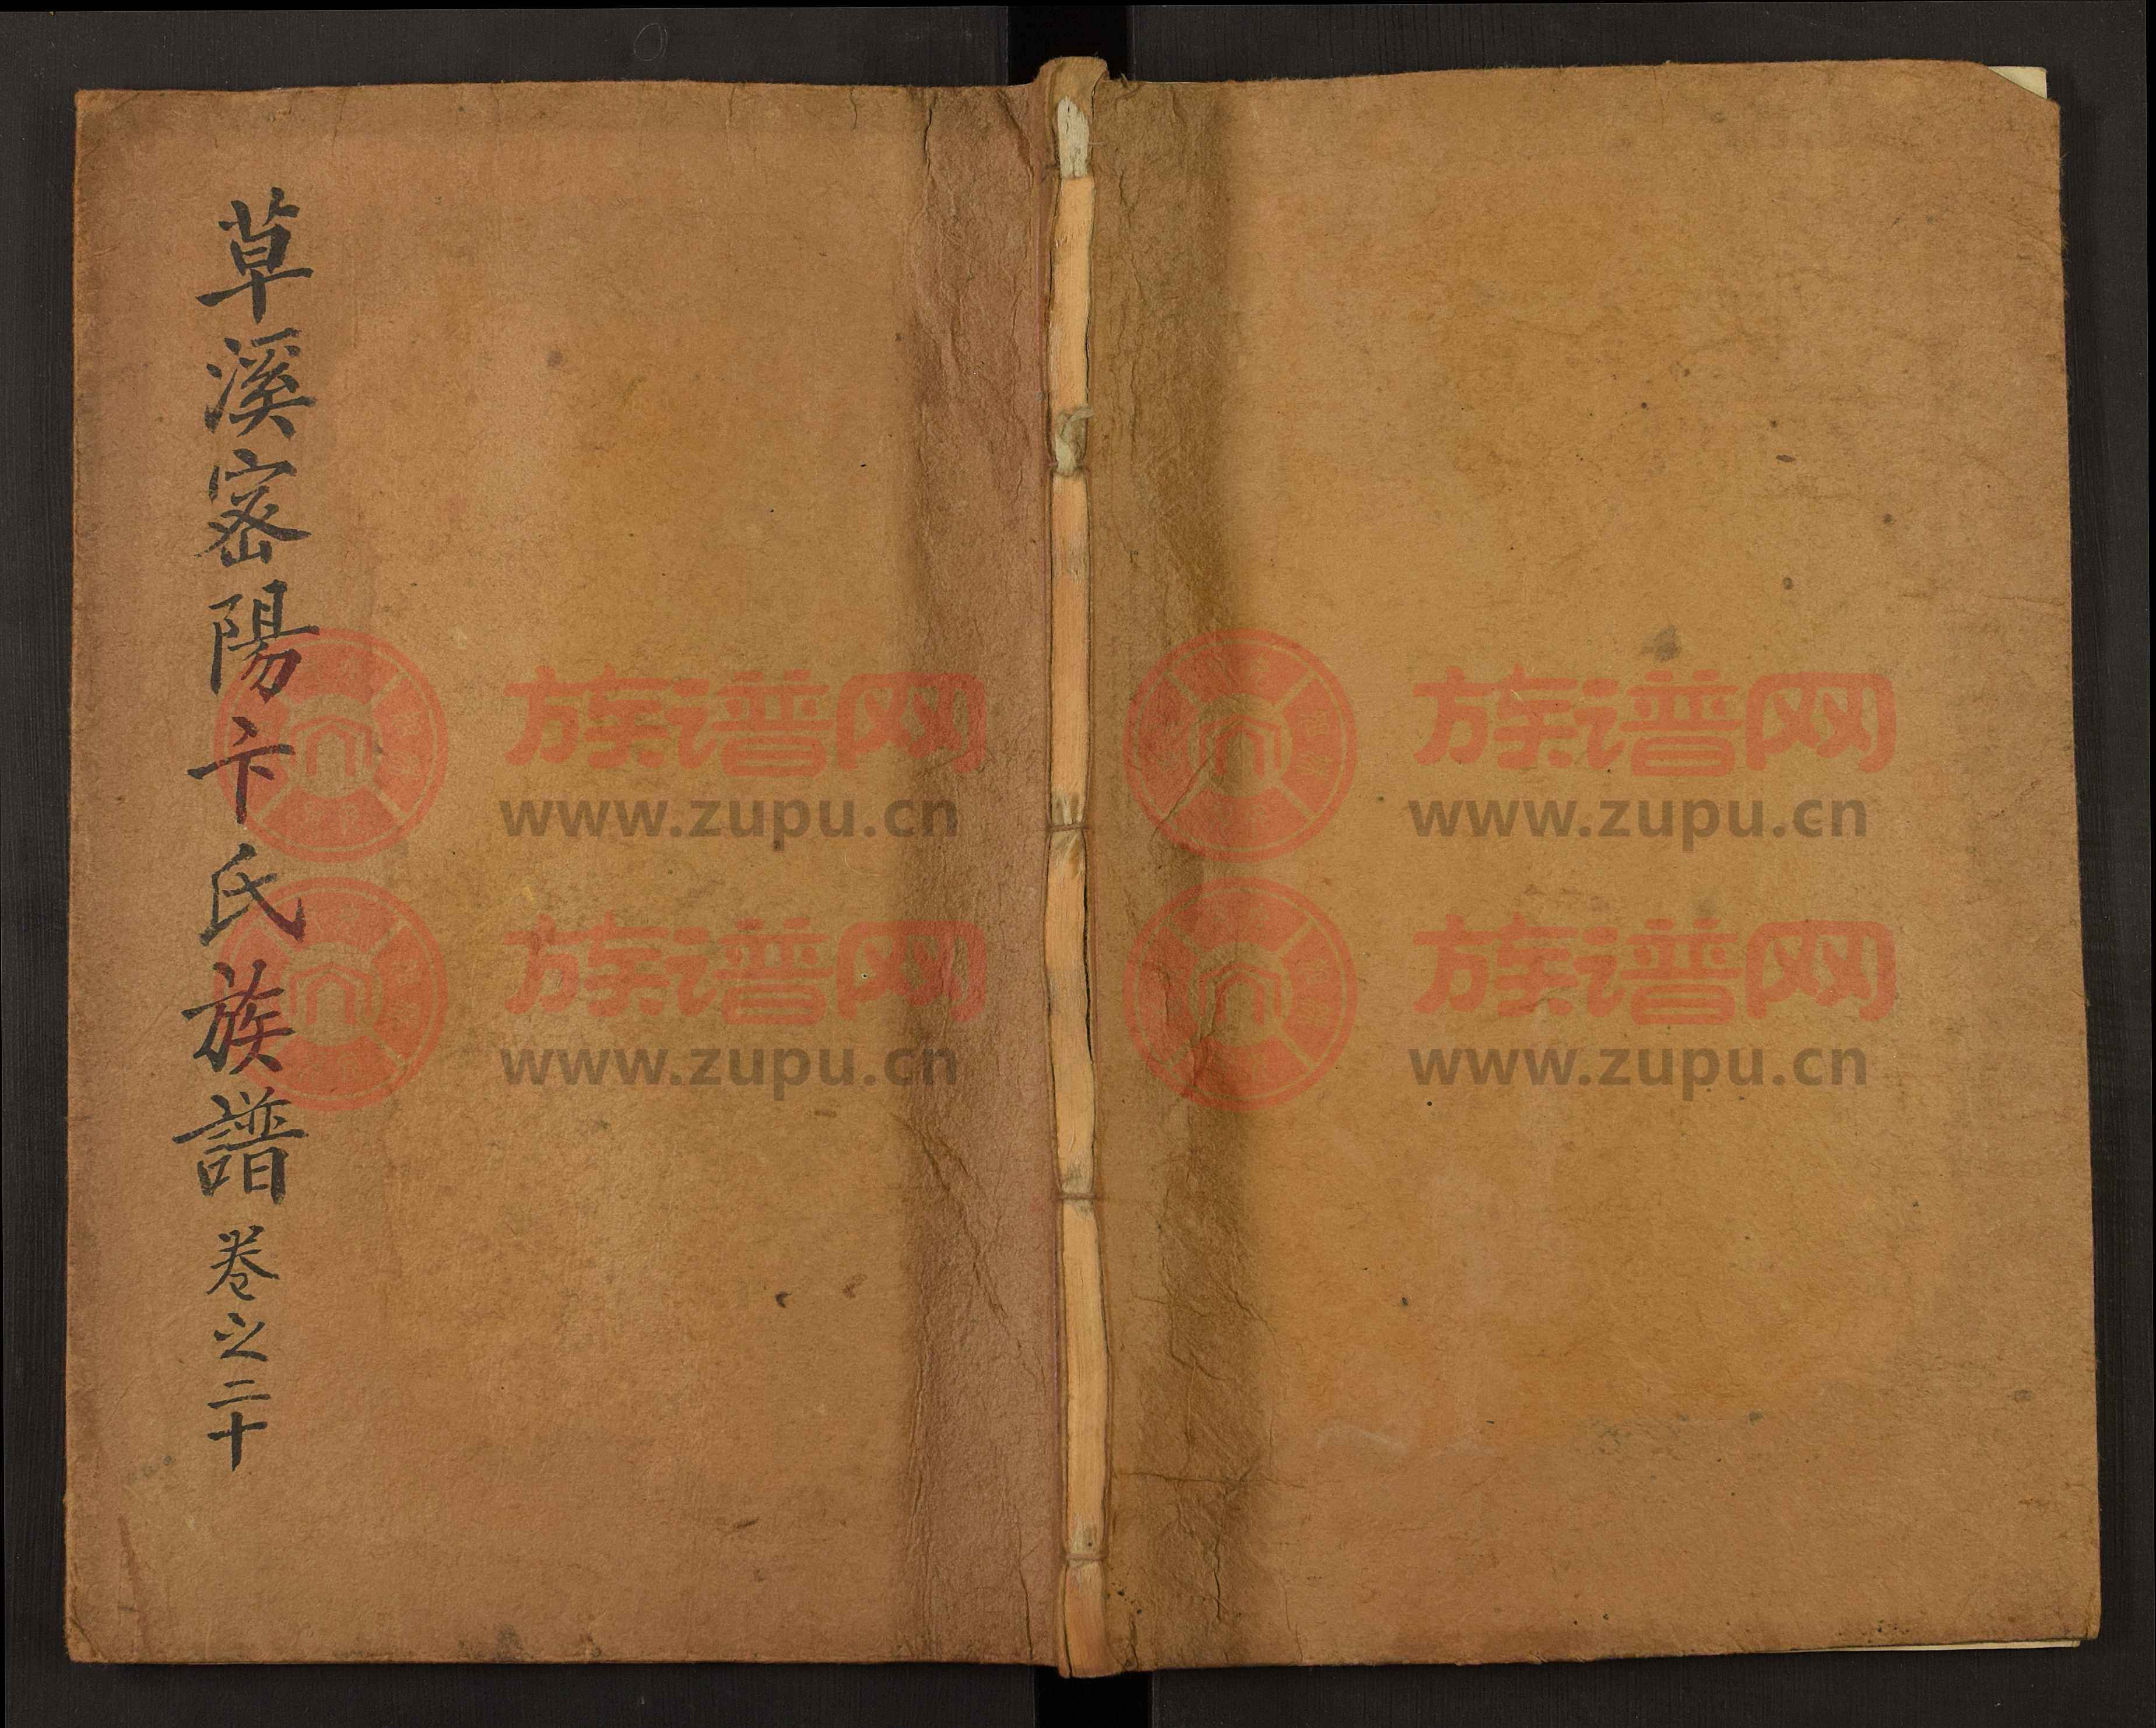 草溪密陽卞氏族譜 卷之二十
族谱网
www.zupu.cn
族谱网
www.zupu.cn
族谱网
www.zupu.cn
族谱网
www.zupu.cn